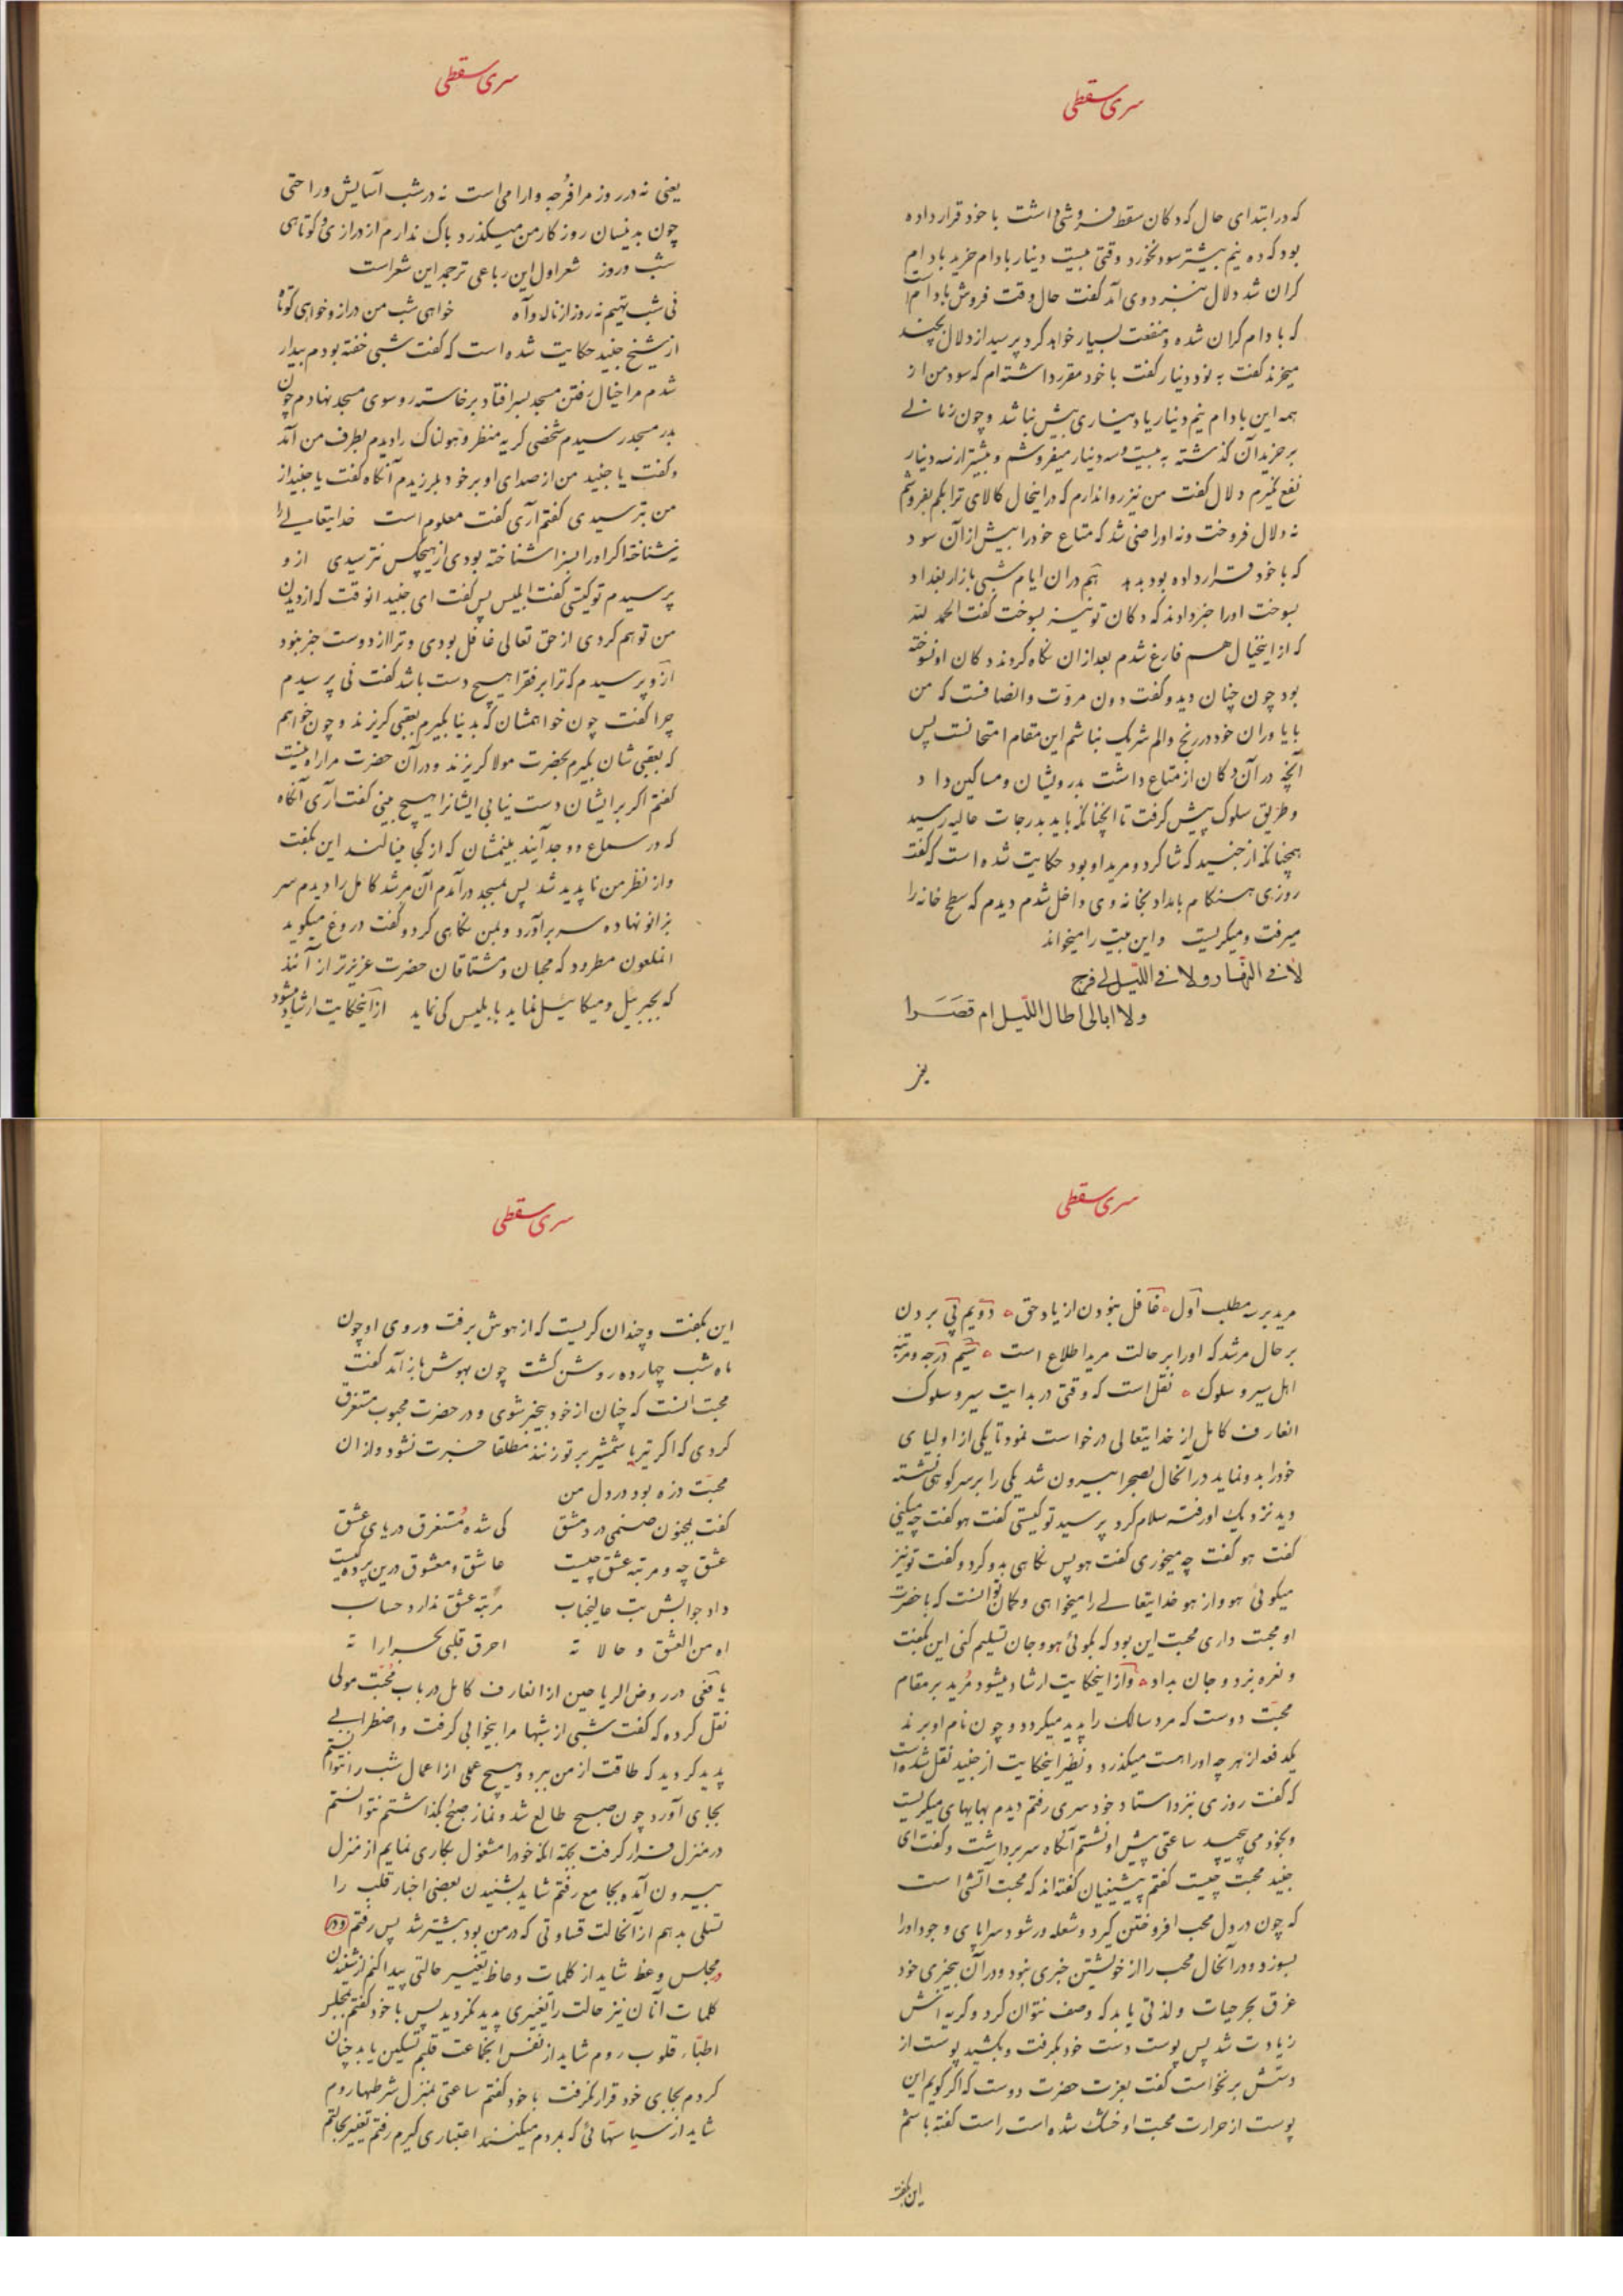 سری سقطی
که در ابتدای حال که دکان سقط فروشی داشت با خود قرار داده
بود که ده نیم بیشتر سود نخورد وقتی بیست دینار بادام خرید بادام
کران شد دلال بنزد وی آمد گفت حال وقت فروش بادام است
که بادام کران شده و منفعت بسیار خواهد کرد پرسید از دلال بچند
میخرند گفت به نود دینار گفت با خود مقرر داشته‌ام که سود من از
همه این بادام نیم دینار یا دیناری بیش نباشد و چون زمانی
بر خرید آن گذشته به بیست و سه دینار میفروشم و بیشتر از سه دینار
نفع نگیرم دلال گفت من نیز روا ندارم که در اینحال کالای ترا بکم بفروشم
نه دلال فروخت و نه او راضی شد که متاع خود را بیش از آن سود
که با خود قرار داده بود بدهد هم در ان ایام شبی بازار بغداد
بسوخت او را خبر دادند که دکان تو نیز بسوخت گفت الحمد لله
که از اینخیال هم فارغ شدم بعد از ان نگاه کردند دکان او نسوخته
بود چون چنان دید و گفت دون مروّت و انصافست که من
با یاوران خود در رنج و الم شریک نباشم این مقام امتحانست پس
آنچه در آن دکان از متاع داشت بدرویشان و مساکین داد
و طریق سلوک پیش گرفت تا آنچنانکه باید بدرجات عالیه رسید
همچنانکه از جنید که شاگرد و مرید او بود حکایت شده است که گفت
روزی هنکام بامداد بخانه وی داخل شدم دیدم که سطح خانه را
میرفت و میکریست و این بیت را میخواند
لا فی النهّار و لا فی اللّیل لی فرج
و لا ابالی اطال اللّیل ام قصَرا
سری سقطی
یعنی نه در روز مرا فرُجه و ارامی است نه در شب آسایش و راحتی
چون بدینسان روز کار من میکذرد باک ندارم از درازی و کوتاهی
شب و روز شعر اول این رباعی ترجمه این شعر است
نی شب تهیم نه روز از ناله و آه خواهی شب من دراز و خواهی کوتاه
از شیخ جنید حکایت شده است که گفت شبی خفته بودم بیدار
شدم مرا خیال رفتن مسجد بسر افتاد برخاسته رو سوی مسجد نهادم چون
بدر مسجد رسیدم شخصی کریه منظر و هولناک را دیدم بطرف من آمد
و گفت یا جنید من از صدای او بر خود بلرزیدم آنکاه گفت یا جنید از
من بترسیدی گفتم آری گفت معلوم است خدایتعالی را
نشناختۀ اکر او را بسزا شناخته بودی از هیچکس نترسیدی از و
پرسیدم تو کیستی گفت ابلیس پس گفت ای جنید انوقت که از دیدن
من توهم کردی از حق تعالی غافل بودی و ترا از دوست خبر نبود
از و پرسیدم که ترا بر فقرا هیچ دست باشد گفت نی پرسیدم
چرا گفت چون خواهمشان که بدنیا بگیرم بعقبی کریزند و چون خواهم
که بعقبی شان بکیرم بحضرت مولا کریزند و در آن حضرت مرا راه نیست
گفتم اکر بر ایشان دست نیابی ایشانرا هیچ بینی گفت آری آنکاه
که در سماع و وجد آیند ببینمشان که از کجا مینالند این بگفت
و از نظر من ناپدید شد پس بمسجد درآمدم آن مرشد کامل را دیدم سر
بزانو نهاده سر برآورد و بمن نکاهی کرد و گفت دروغ میگوید
انملعون مطرود که محبان و مشتاقان حضرت عزیزتر از آنند
که بجبرییل و میکاییل نماید بابلیس کی نماید از اینحکایت ارشاد میشود
سری سقطی
مرید بر سه مطلب اول غافل نبودن از یاد حق دویم پی بردن
بر حال مرشد که او را بر حالت مرید اطلاع است سیم درجه و مرتبه
اهل سیر و سلوک نقل است که وقتی در بدایت سیر و سلوک
انعارف کامل از خدایتعالی درخواست نمود تا یکی از اولیای
خود را بدو نماید در آنحال بصحرا بیرون شد یکی را بر سر کوهی نشسته
دید نزدیک او رفته سلام کرد پرسید تو کیستی گفت هو گفت چه میکنی
گفت هو گفت چه میخوری گفت هو پس نکاهی بدو کرد و گفت تو نیز
میکوئی هو و از هو خدایتعالی را میخواهی و کمان تو انست که با حضرت
او محبت داری محبت این بود که بکوئی هو و جان تسلیم کنی این بگفت
و نعره بزد و جان بداد و از اینحکایت ارشاد میشود مرید بر مقام
محبّت دوست که مرد سالک را پدید میکردد و چون نام او برند
یکدفعه از هر چه او را هست میکذرد و نظیر اینحکایت از جنید نقل شده است
که گفت روزی بنزد استاد خود سری رفتم دیدم بهایهای میکریست
و بخود می پیچید ساعتی پیش او نشستم آنکاه سر برداشت و گفت ای
جنید محبت چیست گفتم پیشینیان گفته‌اند که محبت آتشی است
که چون در دل محب افروختن کیرد و شعله ور شود سراپای وجود او را
بسوزد و در آنحال محب را از خویشتن خبری نبود و در آن بیخبری خود
غرق بحر حیات و لذتی یابد که وصف نتوان کرد و کریه اش
زیادت شد پس پوست دست خود بگرفت و بکشید پوست از
دستش برنخواست گفت بعزت حضرت دوست که اکر کویم این
پوست از حرارت محبت او خشک شده است راست گفته باشم
این بگفت
سری سقطی
این بگفت و چندان کریست که از هوش برفت و روی او چون
ماه شب چهارده روشن کشت چون بهوش باز آمد گفت
محبت انست که چنان از خود بیخبر شوی و در حضرت محبوب مستغرق
کردی که اکر تیر یا شمشیر بر تو زنند مطلقا خبرت نشود و از ان
محبّت ذره بود در دل من
گفت بمجنون صنمی در دمشق کی شده مُستغرق دریای عشق
عشق چه و مرتبه عشق چیست عاشق و معشوق درین پرده کیست
داد جوابش بت عالیجناب مرتبه عشق ندارد حساب
اه من العشق و حالاته احرق قلبی بحراراته
یافعی در روض الریاحین از انعارف کامل در باب محبّت مولی
نقل کرده که گفت شبی از شبها مرا بیخوابی گرفت و اضطرابی
پدید کردید که طاقت از من ببرد و هیچ عملی از اعمال شب را نتوانستم
بجای آورد چون صبح طالع شد و نماز صبحُ بگذاشتم نتوانستم
در منزل قرار گرفت بجهة انکه خود را مشغول بکاری نمایم از منزل
بیرون آمده بجامع رفتم شاید بشنیدن بعضی اخبار قلب را
تسلی بدهم از آنحالت قساوتی که در من بود بیشتر شد پس رفتم
در مجلس وعظ شاید از کلمات وعاظ تغییر حالتی پیدا کنم از شنیدن
کلمات آنان نیز حالت را تغییری پدید نکردید پس با خود گفتم بمجلس
اطبّاء قلوب روم شاید از نفس انجماعت قلبم تسکین یابد چنان
کردم بجای خود قرار نگرفت با خود گفتم ساعتی بمنزل شرطها روم
شاید از سیاستهائی که بمردم میکنند اعتباری کیرم رفتم تغییر بحالتم